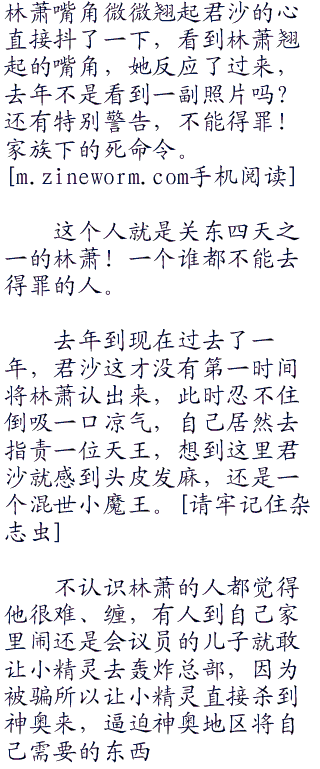 林萧嘴角微微翘起君沙的心
直接抖了一下，看到林萧翘
起的嘴角，她反应了过来，
去年不是看到一副照片吗？
还有特别警告，不能得罪！
家族下的死命令。
[m.zineworm.com手机阅读]
这个人就是关东四天之
一的林萧！一个谁都不能去
得罪的人。
去年到现在过去了一
年，君沙这才没有第一时间
将林萧认出来，此时忍不住
倒吸一口凉气，自己居然去
指责一位天王，想到这里君
沙就感到头皮发麻，还是一
个混世小魔王。[请牢记住杂
志虫]
不认识林萧的人都觉得
他很难、缠，有人到自己家
里闹还是会议员的儿子就敢
让小精灵去轰炸总部，因为
被骗所以让小精灵直接杀到
神奥来，逼迫神奥地区将自
己需要的东西